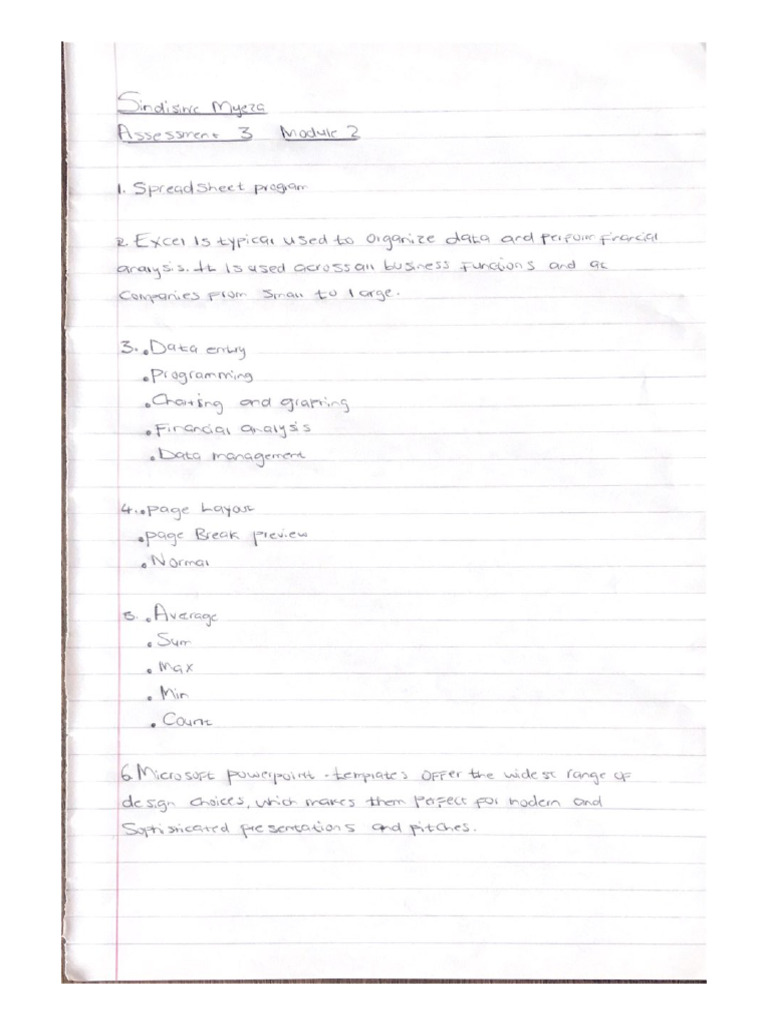 Sindisiwe Myeza
Assessment 3 Module 2
1. Spreadsheet program
2. Excel is typical used to organize data and perform financial
analysis. It is used across all business functions and at
companies from small to large.
3. • Data entry
• Programming
• Charting and graphing
• Financial analysis
• Data management
4. • page Layout
• page Break preview
• Normal
5. • Average
• Sum
• Max
• Min
• Count
6. Microsoft powerpoint - templates offer the widest range of
design choices, which makes them perfect for modern and
Sophisticated presentations and pitches.